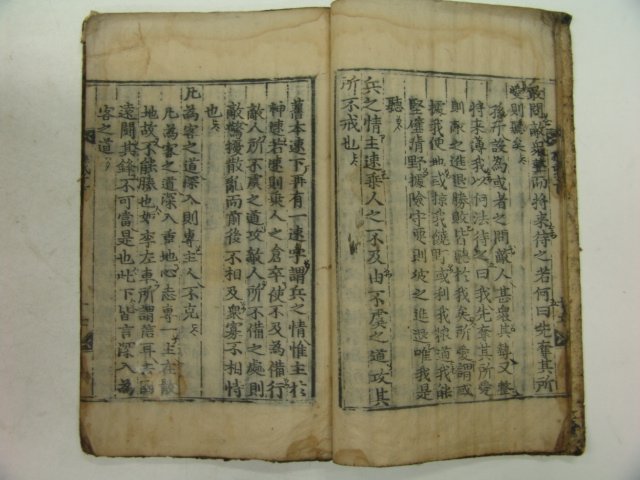 敢問敵衆整而將來待之若何曰先奪其所
愛則聽矣
孫子設爲或者之問敵人甚衆其陣又整
將來薄我以何法待之曰我先奪其所愛
則敵之進退勝敗皆聽於我矣所愛謂或
據我便地或掠我饒野或利我糧道我能
堅壁清野據險守要則彼之進退唯我是
聽
兵之情主速乘人之不及由不虞之道攻其
所不戒也
舊本速下再有一速字謂兵之情惟主於
神速若速則乘人之倉卒使不及爲備行
敵人所不虞之道攻敵人所不備之處則
敵驚擾散亂而前後不相及衆寡不相恃
也
凡爲客之道深入則專主人不克
凡爲客之道深入重地心志專一主在散
地故不能勝也如李左車所謂信耳去國
遠鬪其鋒不可當是也此下皆言深入爲
客之道